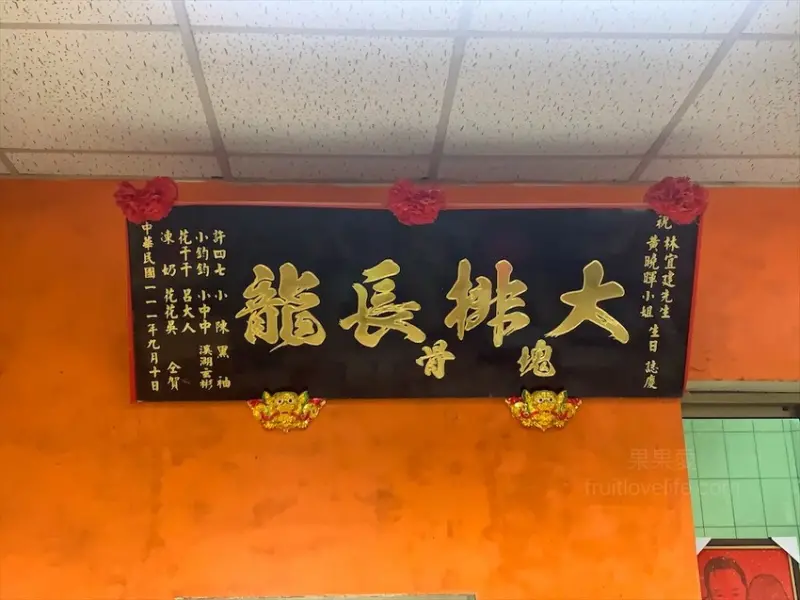 祝 林宜建先生
黃曉暉小姐 生日 誌慶
大排長龍
塊骨
許四七 小陳 黑袖
小鈞鈞 小中中 溪湖云彬
花千千 呂大人
凍奶 花花吳 仝賀
中華民國一一一年九月十日
果果愛
fruitlovelife.com